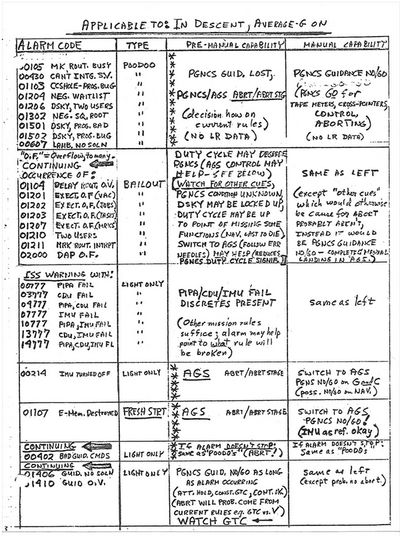 APPLICABLE TO: IN DESCENT, AVERAGE-G ON
ALARM CODE TYPE PRE-MANUAL CAPABILITY MANUAL CAPABILITY
00105 MK ROUT. BUSY POODOO
00430 CAN'T INTG. S.V. "
01103 CCSHOLE-PROG. BUG "
01204 NEG. WAITLIST "
01206 DSKY, TWO USERS "
01302 NEG. SQ. ROOT "
01501 DSKY, PROG. BAD "
01502 DSKY, PROG. BUG "
00607 LAMB. NO SOLN "
PGNCS GUID. LOST,
PGNCS/AGS ABRT/ABRT STG
(decision how on
current rules)
(NO LR DATA)
PGNCS GUIDANCE NO/GO
PGNCS GO FOR
TAPE METERS, CROSS-POINTERS,
CONTROL,
ABORTING)
(NO LR DATA)
"O.F."= Overflow, too many.
CONTINUING
OCCURRENCE OF:
01104 DELAY ROUT. O.V. BAILOUT
01201 EXECT. O.F (VAC) "
01202 EXECT. O.F. (JOBS) "
01203 EXECT. O.F (TASKS) "
01207 EXECT. O.F. "
01210 TWO USERS "
01211 MRK ROUT. INTRPT "
02000 DAP O.F. "
DUTY CYCLE MAY
PGNCS (AGS CONTROL MAY
HELP - SEE BELOW)
(WATCH FOR OTHER CUES,
PGNCS CONDITION UNKNOWN,
DSKY MAY BE LOCKED UP,
DUTY CYCLE MAY BE UP
TO POINT OF MISSING SOME
FUNCTIONS (NAV. LAST TO DIE)
SWITCH TO AGS (FOLLOW ERR
NEEDLES) MAY HELP (REDUCES
PGNCS DUTY CYCLE
SAME AS LEFT
(except "other cues"
which would otherwise
be cause for ABORT
PROBABLY AREN'T,
INSTEAD IT WOULD
BE PGNCS GUIDANCE
NO/GO - COMPLETE MANUAL
LANDING IN AGS.)
ISS WARNING WITH:
00777 PIPA FAIL LIGHT ONLY
03777 CDU FAIL "
04777 PIPA, CDU FAIL "
07777 IMU FAIL "
10777 PIPA, IMU FAIL "
13777 CDU, IMU FAIL "
14777 PIPA, CDU, IMU FL "
PIPA/CDU/IMU FAIL
DISCRETES PRESENT
(Other mission rules
suffice; alarm may help
point to what rule will
be broken)
Same as left
00214 IMU TURNED OFF LIGHT ONLY AGS ABRT/ABRT STAGE
SWITCH TO AGS
PGNS NO/GO ON G and C
(poss. NO/GO on NAV.)
01107 E-Mem. Destroyed FRESH STRT AGS ABRT/ABRT STAGE
SWITCH TO AGS
PGNCS NO/GO!
(IMU as ref. okay)
CONTINUING
00402 BAD GUID. CMDS LIGHT ONLY
IF ALARM DOESN'T STOP:
Same as "POODOO'S" (ABRT!)
IF ALARM DOESN'T STOP:
Same as "POODOO"
CONTINUING
01406 GUID. NO SOLN LIGHT ONLY
01410 GUID O.V.
PGNCS GUID. NO/GO AS LONG
AS ALARM OCCURRING
(ATT. HOLD, CONST. GTC, CONT. IN.)
(ABRT WILL PROB. COME FROM
CURRENT RULES eg. GTC vs. V)
WATCH GTC
Same as left
(except prob. no abort.)